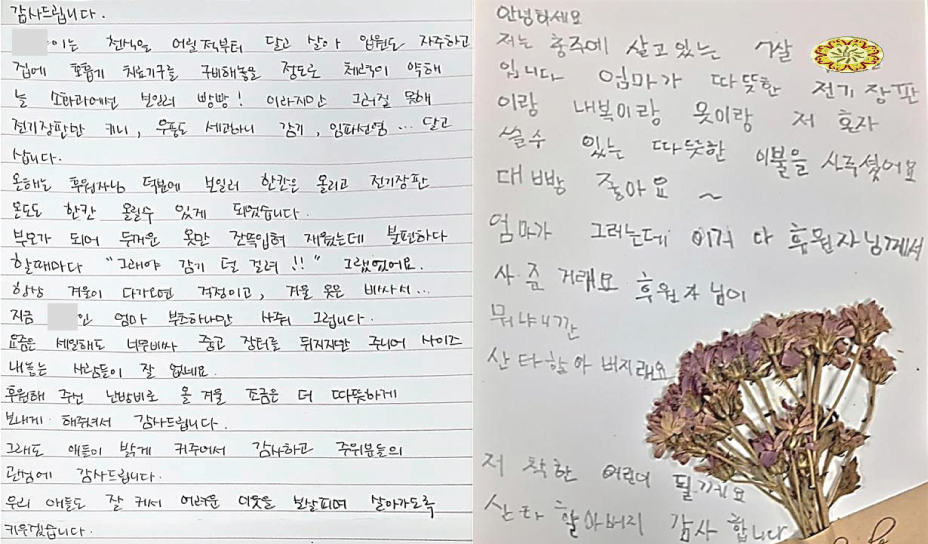 감사드립니다.
이는 천식을 어릴적부터 달고 살아 입원도 자주하고
집에 호흡기 치료기구를 구비해놓을 정도로 체력이 약해
늘 소아과에선 보일러 빵빵! 이라지만 그러질 못해
전기장판만 키니, 우풍도 세고하니 감기, 임파선염... 달고
삽니다.
올해는 후원자님 덕분에 보일러 한칸은 올리고 전기장판
온도도 한칸 올릴수 있게 되었습니다.
부모가 되어 두꺼운 옷만 잔뜩입혀 재웠는데 불편하다
할때마다 "그래야 감기 덜 걸려!!" 그랬었어요.
항상 겨울이 다가오면 걱정이고, 겨울 옷은 비싸서...
지금 인 엄마 부츠하나만 사줘 그럽니다.
요즘은 세일해도 너무비싸 중고 장터를 뒤지지만 주니어 사이즈
내놓는 사람들이 잘 없네요.
후원해 주신 난방비로 올 겨울 조금은 더 따뜻하게
보내게 해주셔서 감사드립니다.
그래도 애들이 밝게 커주어서 감사하고 주위분들의
관심에 감사드립니다.
우리 애들도 잘 커서 어려운 이웃을 보살피며 살아가도록
키우겠습니다.
안녕하세요
저는 충주에 살고있는 7살
입니다 엄마가 따뜻한 전기장판
이랑 내복이랑 옷이랑 저 혼자
쓸수 있는 따뜻한 이불을 사주셨어요
대빵 좋아요 ~
엄마가 그러는데 이거 다 후원자님께서
사준거래요 후원자님이
뭐냐니깐
산타할아버지래요
저 착한 어린이 될거에요
산타 할아버지 감사합니다